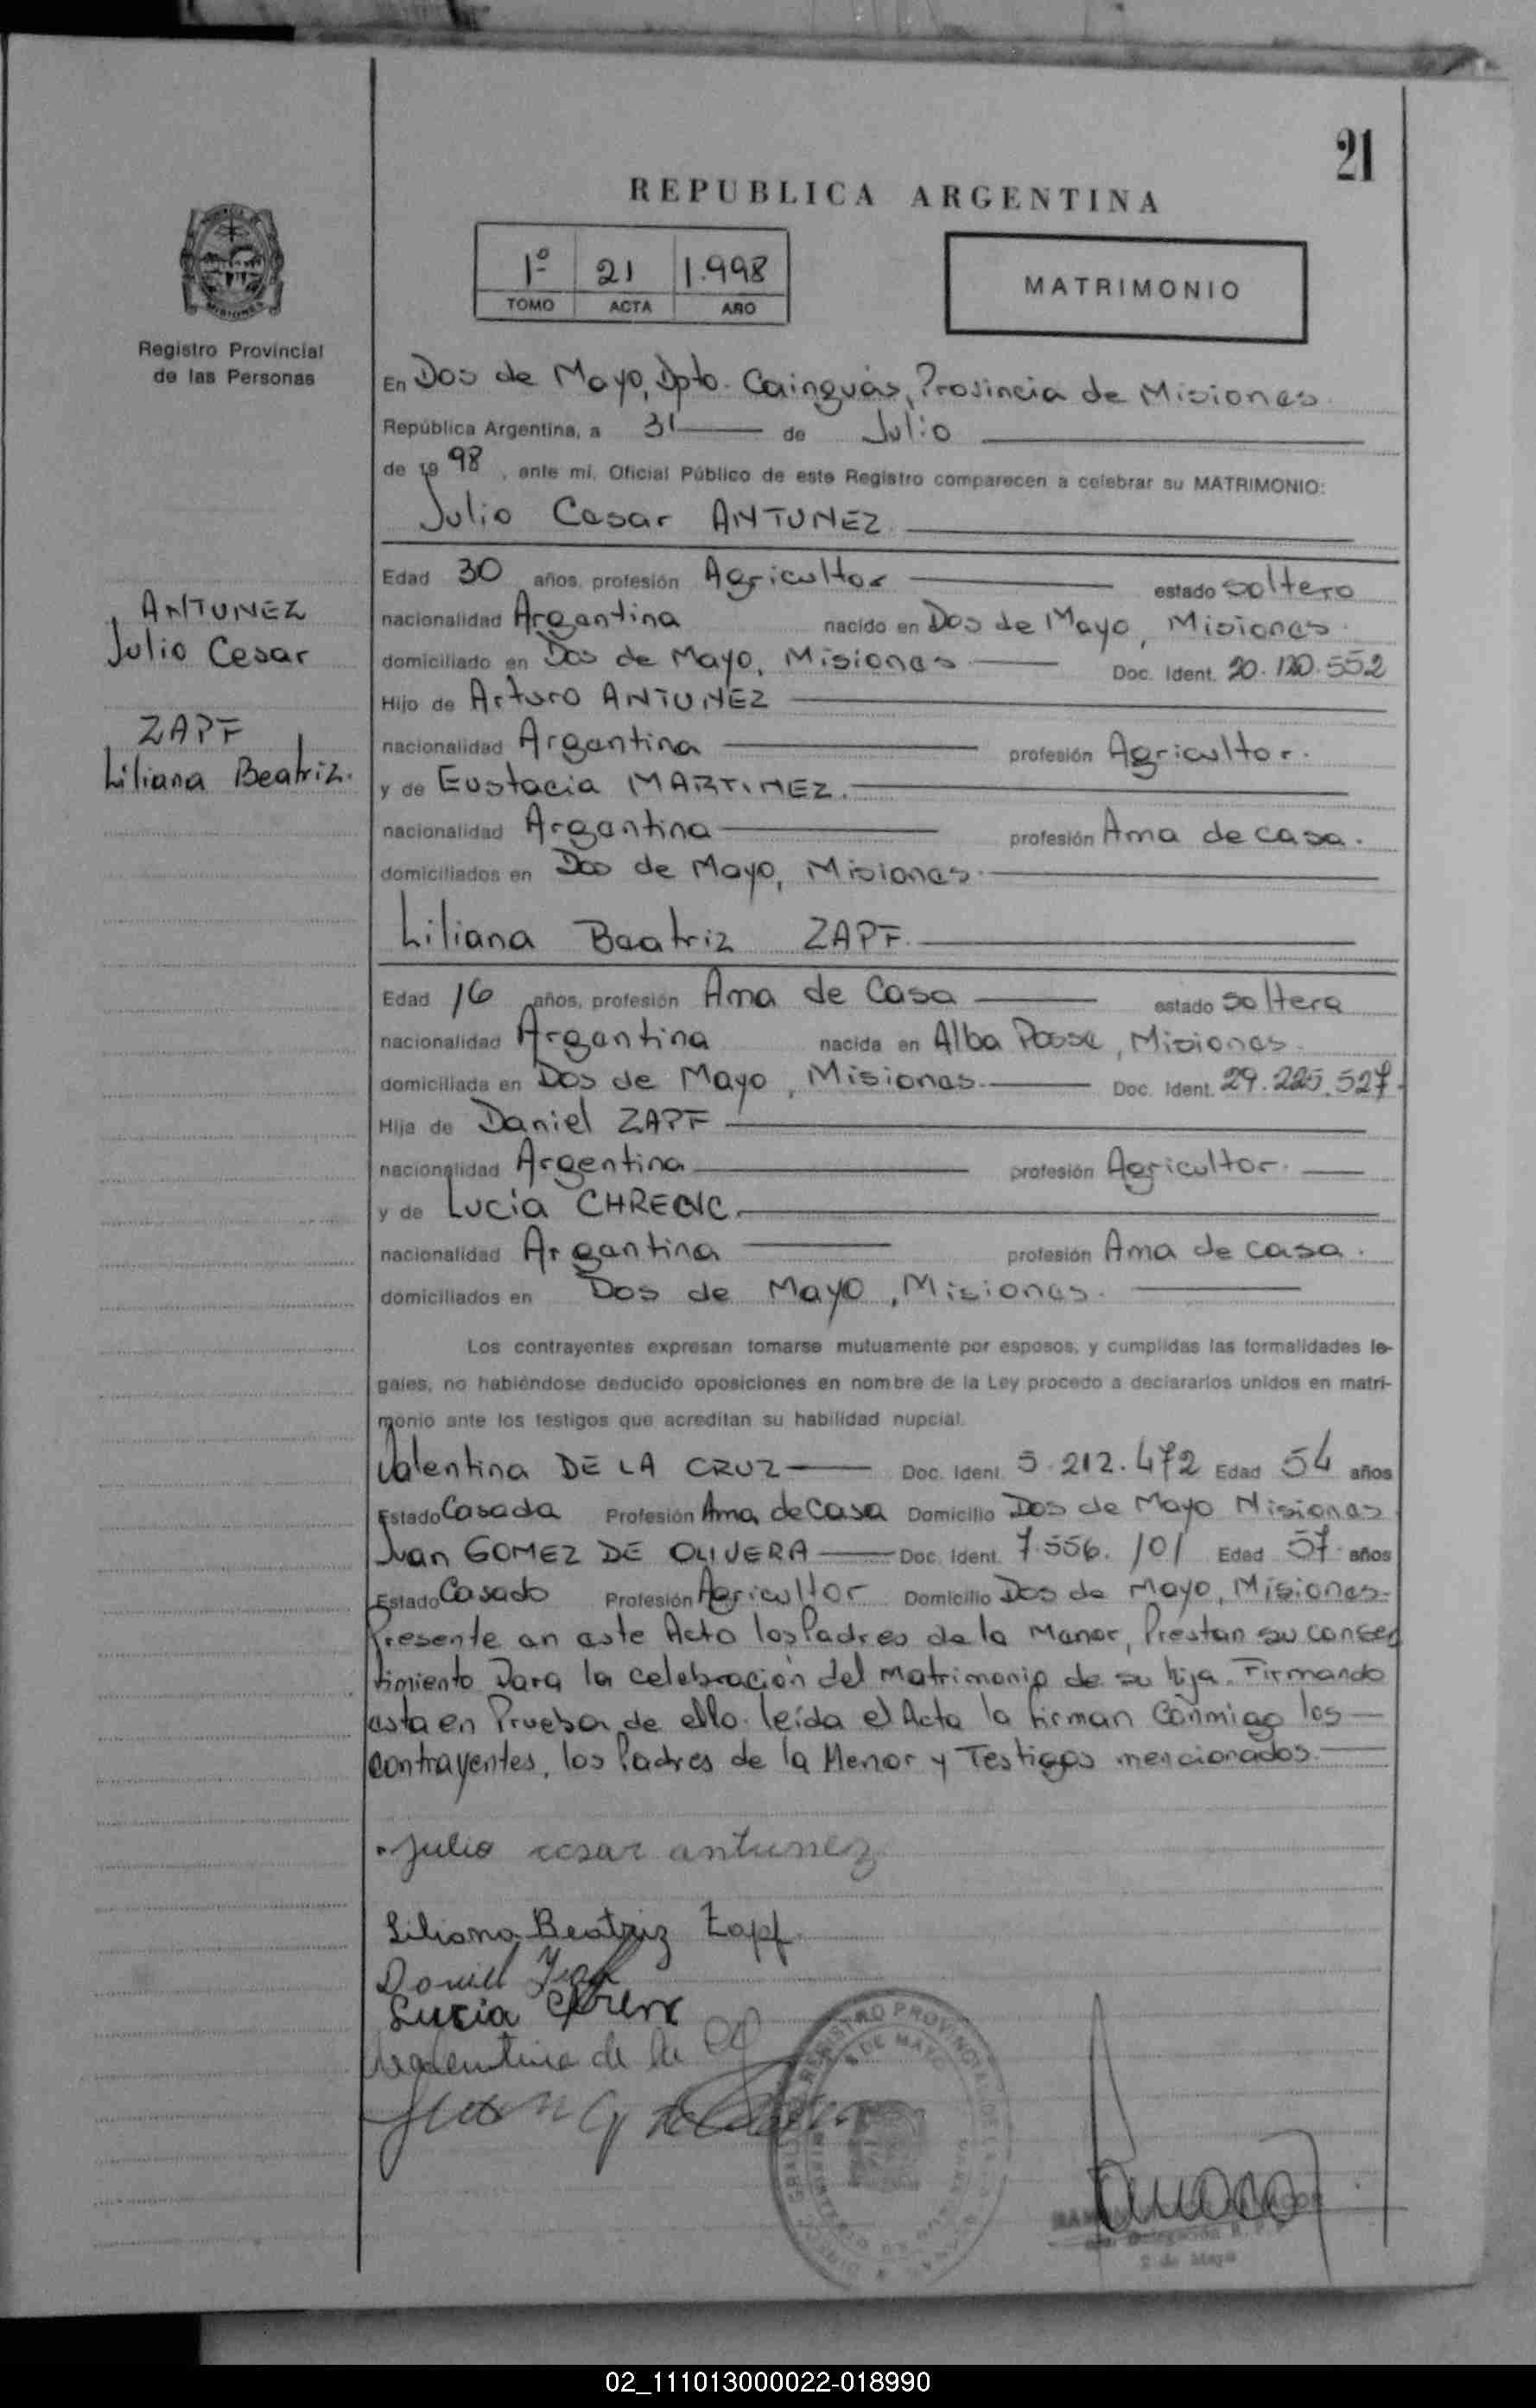 21
REPUBLICA ARGENTINA
1º 21 1.998
TOMO ACTA AÑO
MATRIMONIO
Registro Provincial
de las Personas
En Dos de Mayo, Dpto. Cainguás, Provincia de Misiones.
República Argentina, a 31 de Julio
de 19 98, ante mí, Oficial Público de este Registro comparecen a celebrar su MATRIMONIO:
Julio Cesar ANTUNEZ.
ANTUNEZ
Julio Cesar
ZAPF
Liliana Beatriz.
Edad 30 años, profesión Agricultor estado soltero
nacionalidad Argentina nacido en Dos de Mayo, Misiones.
domiciliado en Dos de Mayo, Misiones Doc. Ident. 20.120.552
Hijo de Arturo ANTUNEZ
nacionalidad Argentina profesión Agricultor.
y de Eustacia MARTINEZ.
nacionalidad Argentina profesión Ama de casa.
domiciliados en Dos de Mayo, Misiones.
Liliana Beatriz ZAPF.
Edad 16 años, profesión Ama de Casa estado soltera
nacionalidad Argentina nacida en Alba Posse, Misiones.
domiciliada en Dos de Mayo, Misiones. Doc. Ident. 29.225.527.
Hija de Daniel ZAPF
nacionalidad Argentina profesión Agricultor.
y de Lucia
nacionalidad Argentina profesión Ama de casa.
domiciliados en Dos de Mayo, Misiones.
Los contrayentes expresan tomarse mutuamente por esposos, y cumplidas las formalidades le-
gales, no habiéndose deducido oposiciones en nombre de la Ley procedo a declararlos unidos en matri-
monio ante los testigos que acreditan su habilidad nupcial.
Valentina DE LA CRUZ Doc. Ident. 5.212.472 Edad 54 años
Estado Casada Profesión Ama de Casa Domicilio Dos de Mayo Misiones
Juan GOMEZ DE OLIVERA Doc. Ident. 7.556.101 Edad 57 años
Estado Casado Profesión Agricultor Domicilio Dos de Mayo, Misiones.
Presente en este Acto los Padres de la Menor, Prestan su consen
timiento Para la celebración del Matrimonio de su hija. Firmando
esta en Prueba de ello. leída el Acta la firman Conmigo los
contrayentes, los Padres de la Menor y Testigos mencionados.
Julio cesar antunez
Liliana Beatriz Zapf.
Daniel Zapf
Lucia
Valentina de la
Juan G
REGISTRO PROVINCIAL DE LAS
2 DE MAYO
Delegación R. P. P.
2 de Mayo
02_111013000022-018990